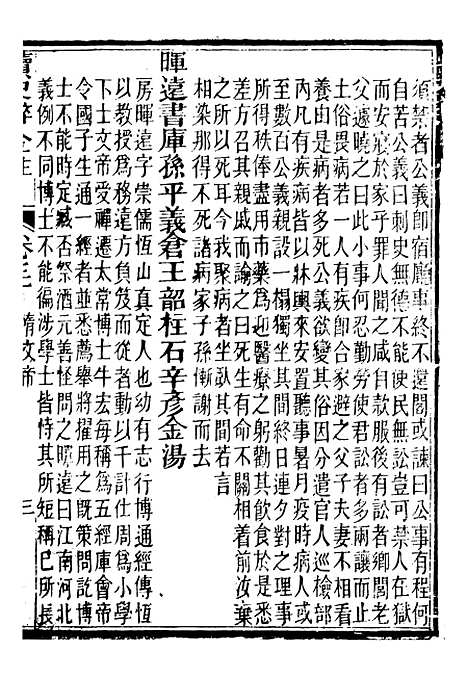 須禁者公義卽宿廳事終不還閤或諫曰公事有程何
自苦公義曰刺史無德不能使民無訟豈可禁人在獄
而安寢於家乎罪人聞之咸自款服後有訟者鄉閭老
父遽曉之曰此小事何忍勤勞使君訟者多兩讓而止
土俗畏病若一人有疾卽合家避之父子夫妻不相看
養由是病者多死公義欲變其俗因分遣官人巡檢部
内凡有疾病皆以牀輿來安置聽事暑月疫時病人或
至數百公義親設一榻獨坐其間終日連夕對之理事
所得秩俸盡用市藥爲迎醫療之躬勸其飲食於是悉
差方召其親戚而諭之曰死生有命不關相着前汝棄
之所以死耳今我聚病者坐臥其間若言
相染那得不死諸病家子孫慚謝而去
暉遠書庫孫平義倉王韶柱石辛彥金湯
房暉遠字崇儒恆山真定人也幼有志行博通經傳恆
以教授爲務遠方負笈而從者動以千計仕周爲小學
下士文帝受禪遷太常博士牛宏每稱爲五經庫會帝
令國子生通一經者並悉薦舉將擢用之旣策問訖博
士不能時定臧否祭酒元善怪問之暉遠曰江南河北
義例不同博士不能徧涉學士皆恃其所短稱已所長
讀史碎金注 卷三 隋文帝 三